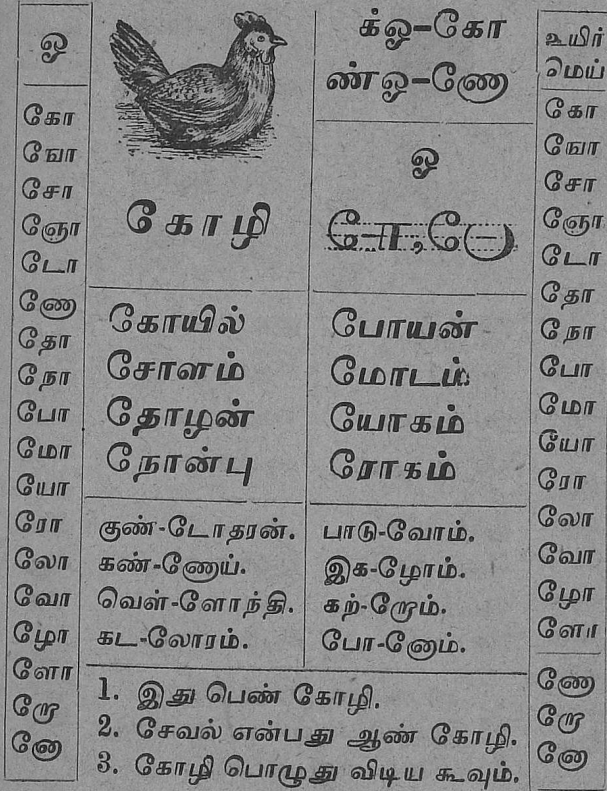 ஓ
கோ
ஙோ
சோ
ஞோ
டோ
ணோ
தோ
நோ
போ
மோ
யோ
ரோ
லோ
வோ
ழோ
ளோ
றோ
னோ
கோழி
க்ஓ-கோ
ண்ஓ-ணோ
ஓ
கோயில்
சோளம்
தோழன்
நோன்பு
போயன்
மோடம்
யோகம்
ரோகம்
குண்-டோதரன்.
கண்-ணோய்.
வெள்-ளோந்தி.
கட-லோரம்.
பாடு-வோம்.
இக-ழோம்.
கற்-றோம்.
போ-னோம்.
1. இது பெண் கோழி.
2. சேவல் என்பது ஆண் கோழி.
3. கோழி பொழுது விடிய கூவும்.
உயிர்
மெய்
கோ
ஙோ
சோ
ஞோ
டோ
தோ
நோ
போ
மோ
யோ
ரோ
லோ
வோ
ழோ
ளோ
ணோ
றோ
னோ